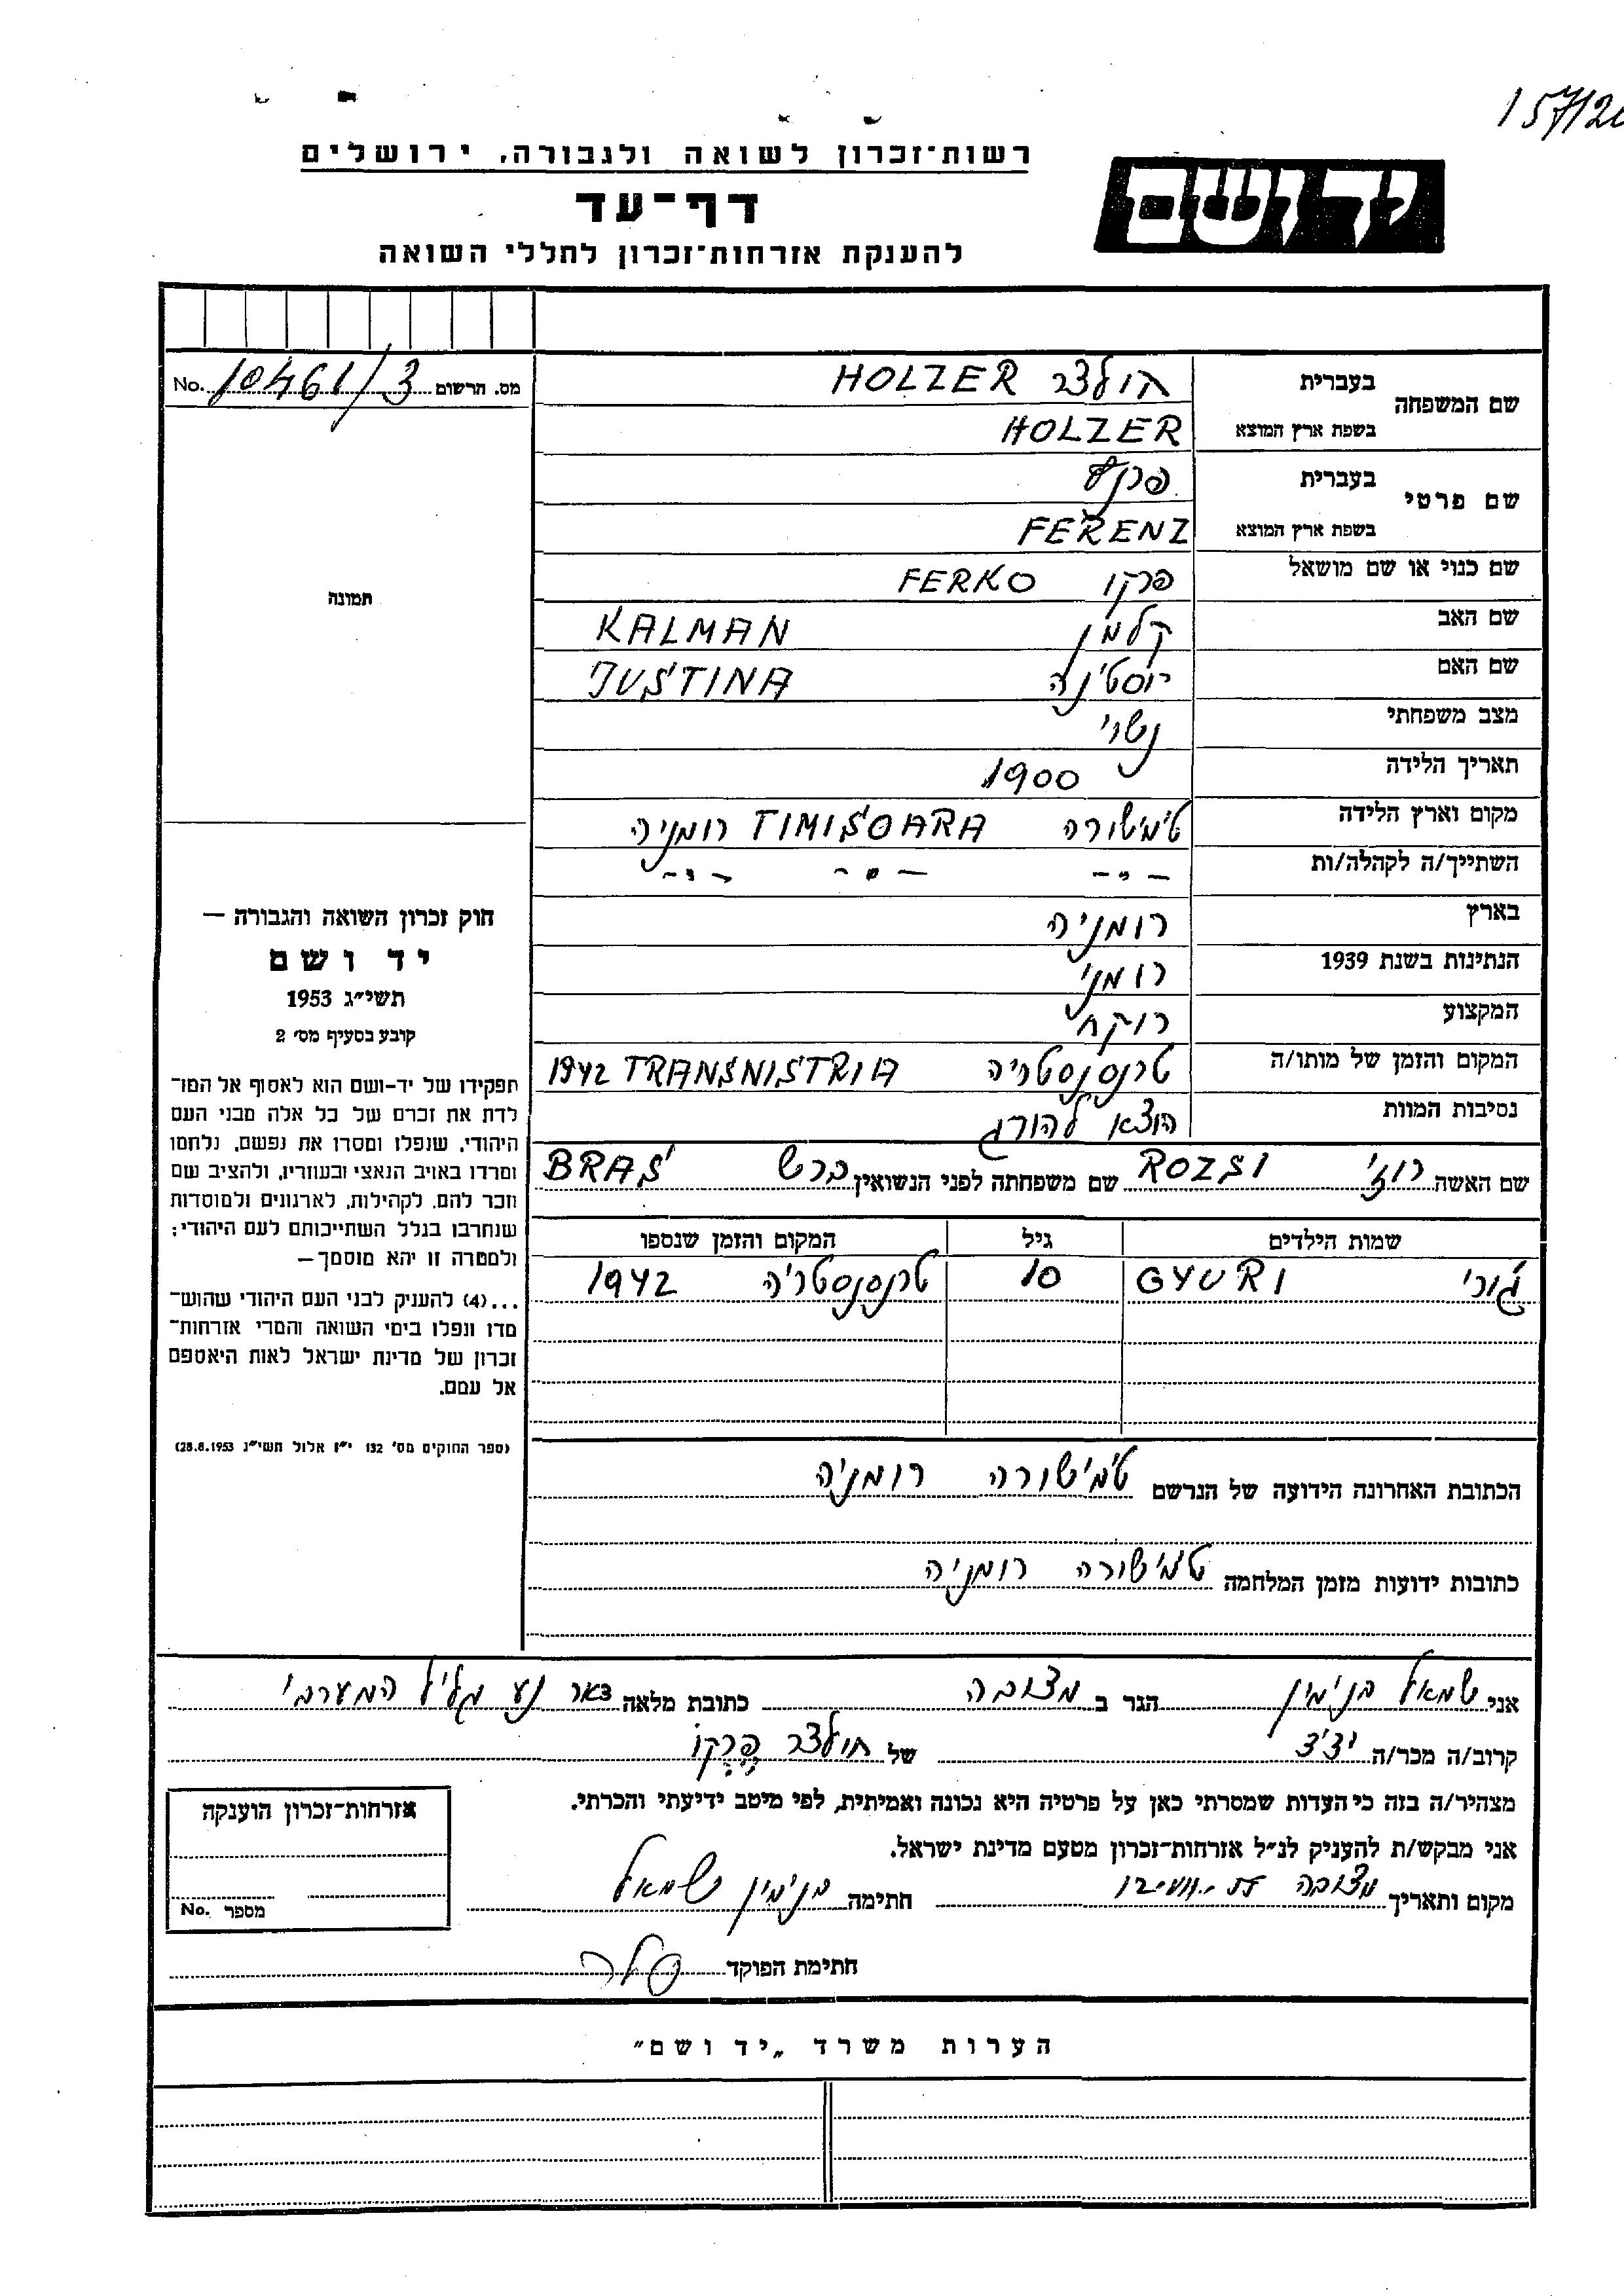 157/2
רשות־זכרון לשואה ולגבורה, ירושלים
יד ושם
דף־עד
להענקת אזרחות־זכרון לחללי השואה
שם המשפחה בעברית הולצר HOLZER
בשפת ארץ המוצא HOLZER
מס. הרשום No. 10461/3
שם פרטי בעברית
בשפת ארץ המוצא FERENZ
שם כנוי או שם מושאל פרקו FERKO
תמונה
שם האב קלמן KALMAN
שם האם יוסטינה JUSTINA
מצב משפחתי נשוי
תאריך הלידה 1900
מקום וארץ הלידה טימישורה TIMIŠOARA רומניה
השתייך/ה לקהלה/ות -"- -"- -"-
בארץ רומניה
הנתינות בשנת 1939 רומני
המקצוע רוקח
המקום והזמן של מותו/ה טרנסנסטריה TRANSNISTRIA 1942
נסיבות המוות הוצא להורג
שם האשה רוזי ROZSI שם משפחתה לפני הנשואין ברש BRAŠ
שמות הילדים גיל המקום והזמן שנספו
ג'ורי GYURI 10 טרנסנסטריה 1942
הכתובת האחרונה הידועה של הנרשם טימישורה רומניה
כתובות ידועות מזמן המלחמה טימישורה רומניה
חוק זכרון השואה והגבורה —
יד ושם
תשי״ג 1953
קובע בסעיף מס׳ 2
תפקידו של יד-ושם הוא לאסוף אל המו־
לדת את זכרם של כל אלה מבני העם
היהודי, שנפלו ומסרו את נפשם, נלחמו
ומרדו באויב הנאצי ובעוזריו, ולהציב שם
וזכר להם, לקהילות, לארגונים ולמוסדות
שנחרבו בגלל השתייכותם לעם היהודי;
ולמטרה זו יהא מוסמך—
...(4) להענית לבני העם היהודי שהוש־
מדו ונפלו בימי השואה והמרי אזרחות־
זכרון של מדינת ישראל לאות היאספם
אל עמם.
(ספר החוקים מס׳ 132 י״ז אלול תשי״ג 28.8.1953)
אני שמואל בנימין הגר ב מצובה כתובת מלאה דאר נע גליל המערבי
קרוב/ה מכר/ה ידיד של הולצר פֶרְקוֹ
מצהיר/ה בזה כי העדות שמסרתי כאן על פרטיה היא נכונה ואמיתית, לפי מיטב ידיעתי והכרתי.
אני מבקש/ת להעניק לנ״ל אזרחות־זכרון מטעם מדינת ישראל.
מקום ותאריך מצובה חתימה בנימין שמואל
חתימת הפוקד
אזרחות־זכרון הוענקה
מספר No.
הערות משרד „יד ושם״